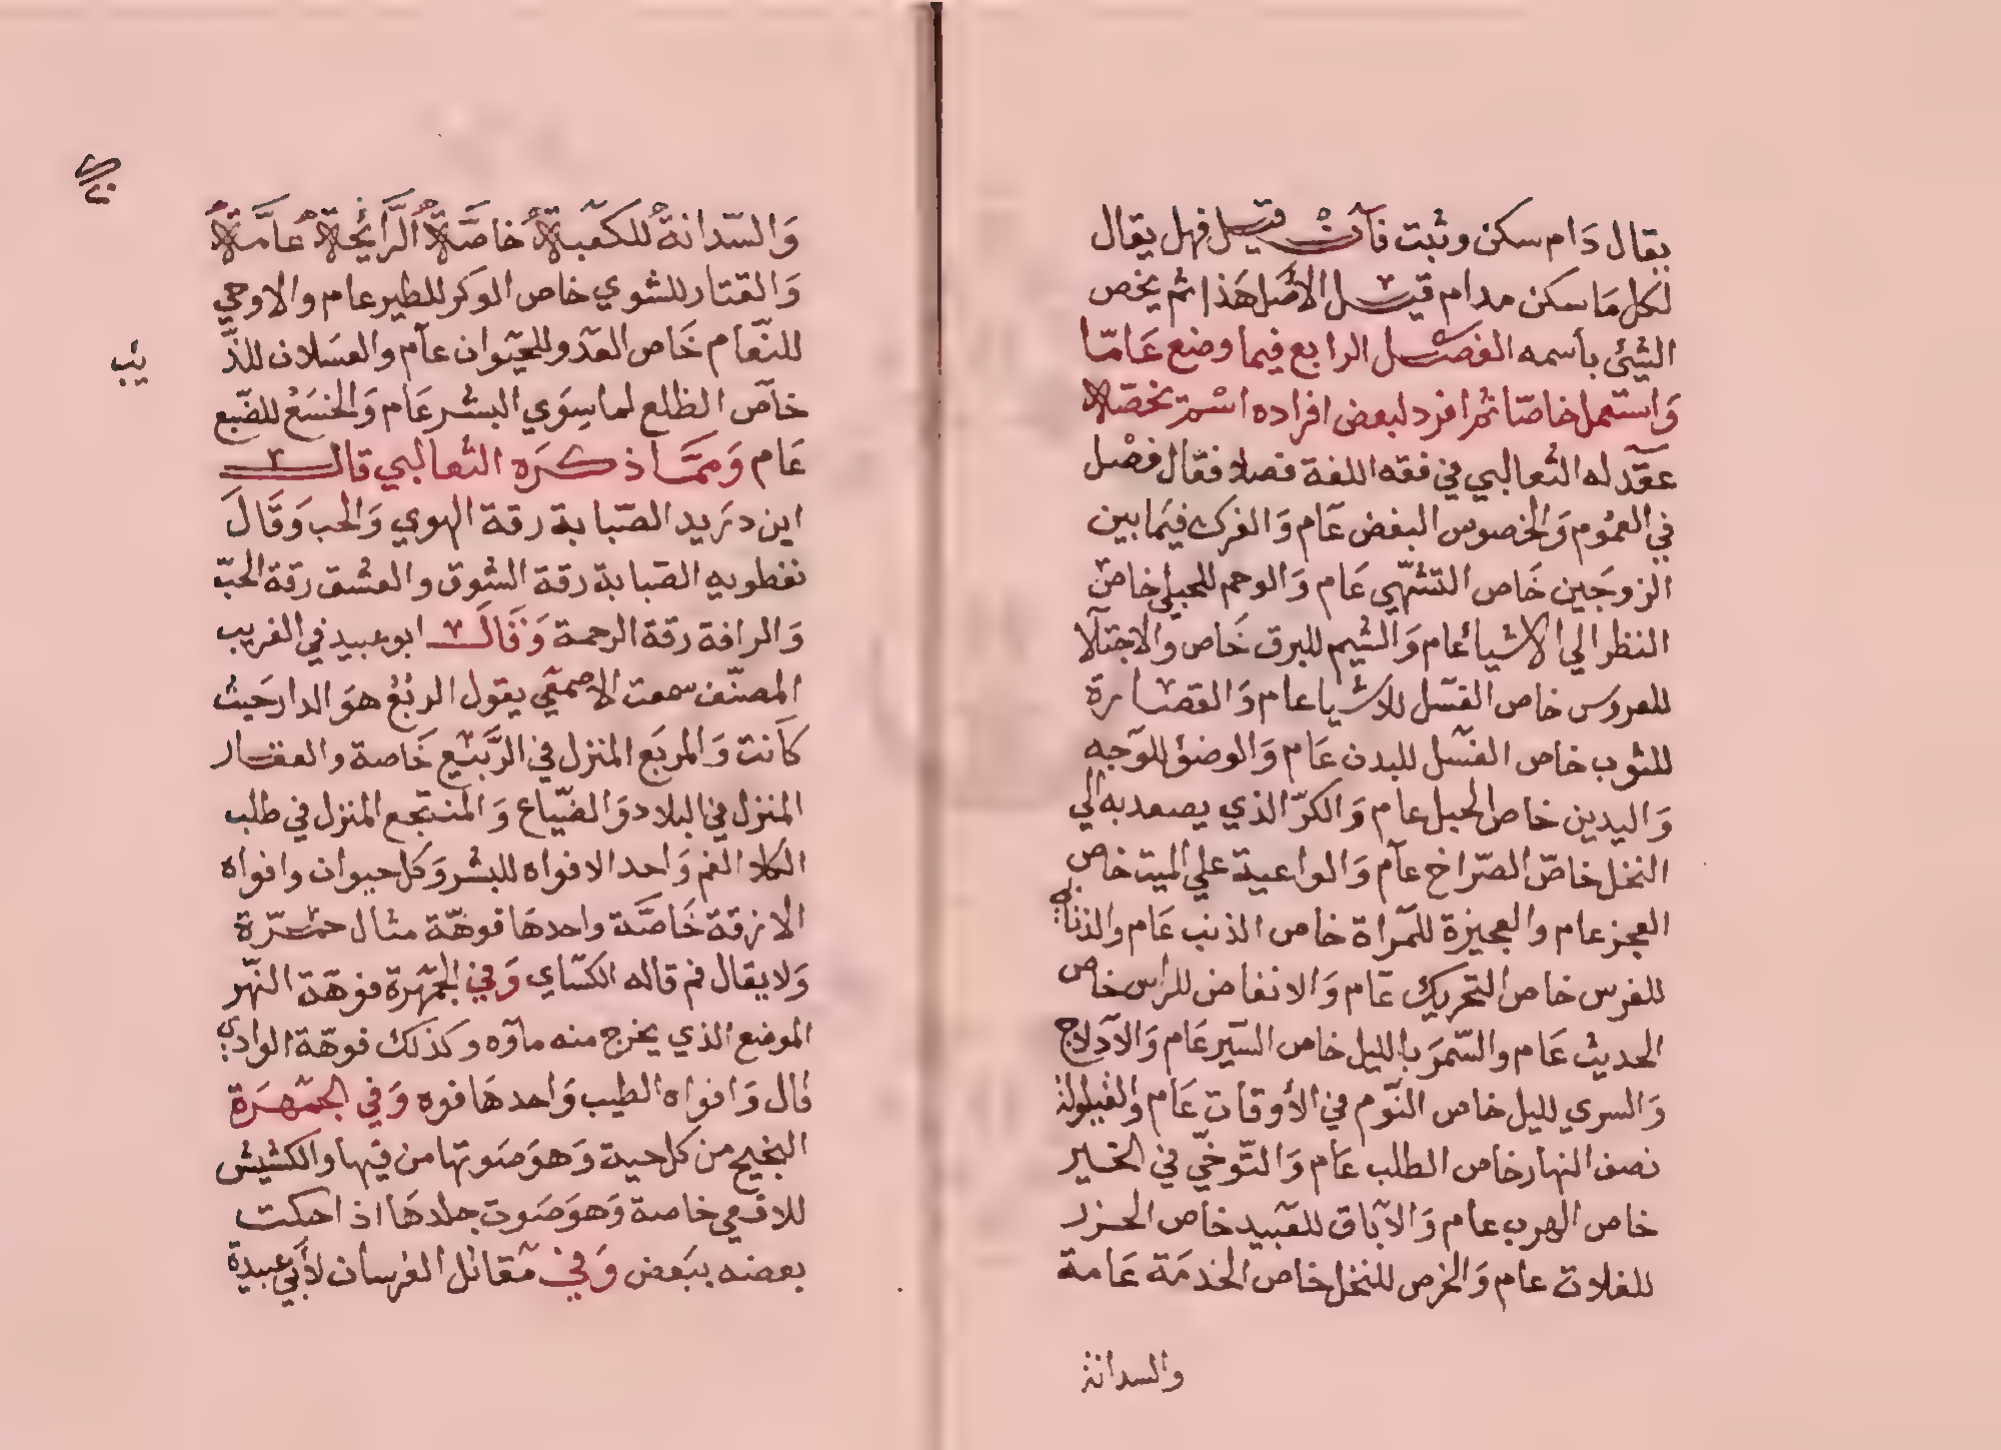 يقال دَام سكن وثبت فآن قيل فهل يقال
لكل مَا سكن مدام قيل الأصل هَذا ثم يخص
الشئ بأسمه الفصل الرابع فيما وضع عَامّا
وَاستعمل خاصّا ثم افرد لبعض افراده اسم يخصّه
عقّد له الثعالبي في فقه اللغة فصلا فقال فصْل
في العمُوم وَالخصوص البغض عَام وَالفرك فيمَا بين
الزوجَين خَاص التشهّي عَام وَالوحم للحبلي خاصّ
النظر الي الاشياء عام وَالشيم للبرق خَاص والاجتلآ
للعروس خاص الغسّل للاشيا عام وَالقصارة
للثوب خاص الغسّل للبدن عَام وَالوضؤ للوَجه
وَاليدين خاص الحبل عام وَالكرّ الذي يصعد به الي
النخل خاصّ الصّراخ عآم وَالواعية علي الميت خاص
العجز عام والعجيزة للمرٓاة خاص الذنب عَام والذنابي
للفرس خاص التحريك عَام وَالانغاض للراس خاص
الحديث عَام والسّمرَ بالليل خاص السّير عَام وَالآدلاج
وَالسري لليل خاص النّوم في الأوقات عَام والقيلولة
نصف النهار خاص الطلب عَام وَالتّوخّي في الخير
خاص الهرب عام وَالآباق للعَبيد خاص الحزر
للغلات عام وَالخرص للنخل خاص الخدمَة عَامة
والسدانة
وَالسّدانةُ للكعَبة خاصّة الرَّايحُة عامَّة
وَالقتار للشوي خاص الوكر للطير عام والاوحي
للنّعام خَاص العَدو للحيَوان عآم والعسَلان للذّ
يب
خاصّ الظلع لما سِوَي البشر عَام وَالخسَعْ للضّبع
عَام وَممَّا ذكرَه الثعالبي قال
ابن دريد الصّبابة رقة الهوي وَالحب وَقَالَ
نفطويه الصَبابة رقة الشوق والعشق رقة الحبّ
وَالرافة رقة الرحمة وَقَالَ ابو عبيد في الغريب
المصنّف سمعت الاصمعَي يقول الربْعُ هوَ الدار حَيث
كاَنت وَالمربَع المنزل في الرَّبيَع خَاصة والعقار
المنزل في البلاد وَالضّياع وَالمنتجع المنزل في طلب
الكلا الفم وَاحد الافواه للبشر وَكل حيوان وافواه
الازقة خَاصَّة واحدهَا فوهّة مثال حمّرة
وَلا يقال فم قاله الكسّاي وَفي الجمَهرة فوهّة النّهر
الموضع الذي يخرج منه مآوه وكذلك فوهّة الوادي
قال وَافواه الطيب وَاحدهَا فوه وَفي الجمَهرَة
الفحيح من كل حية وَهوَ صَوتها من فيها والكشيش
للافعي خاصة وَهوَ صَوت جلدهَا اذا حكت
بعضه ببَعض وَفي مَقاتل الفرسان لأبَي عبيدة